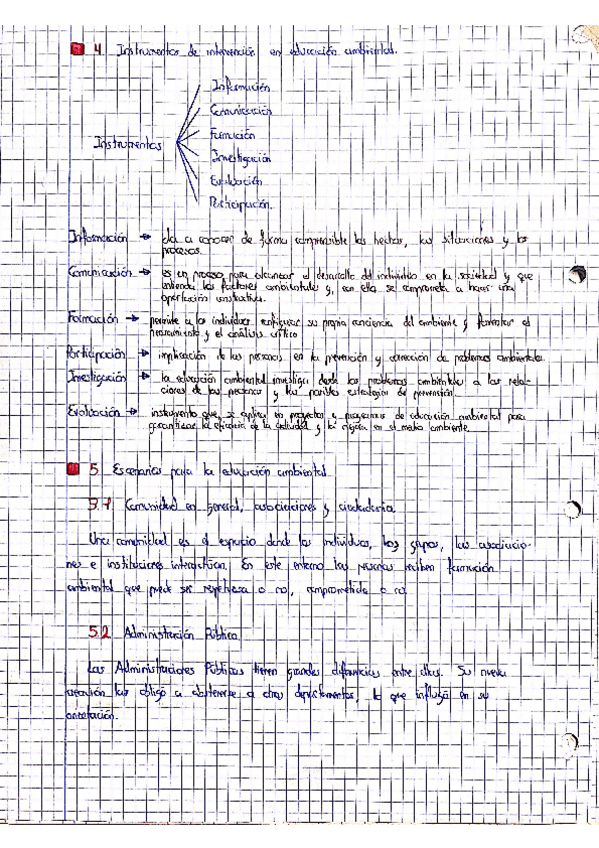 4. Instrumentos de intervención en educación ambiental.
Información
Comunicación
Formación
Instrumentos
Investigación
Evaluación
Participación.
Información → da a conocer de forma comprensible los hechos, las situaciones y los
procesos.
Comunicación → es un proceso para alcanzar el desarrollo del individuo en la sociedad y que
entienda los factores ambientales y, con ello se comprometa a hacer una
aportación constructiva.
Formación → permite a los individuos configurar su propia conciencia del ambiente y fomentar el
razonamiento y el análisis crítico
Participación → implicación de las personas en la prevención y corrección de problemas ambientales.
Investigación → la educación ambiental investiga desde los problemas ambientales a las rela-
ciones de las personas y las posibles estrategias de prevención.
Evaluación → instrumento que se aplica en proyectos o programas de educación ambiental para
garantizar la eficacia de la actividad y la mejora en el medio ambiente.
5. Escenarios para la educación ambiental
5.1. Comunidad en general, asociaciones y ciudadanía.
Una comunidad es el espacio donde los individuos, los grupos, las asociacio-
nes e instituciones interactúan. En este entorno las personas reciben formación
ambiental que puede ser respetuosa o no, comprometida o no.
5.2. Administración Pública.
Las Administraciones Públicas tienen grandes diferencias entre ellas. Su nueva
creación las obligó a a otros departamentos, lo que influyó en su
orientación.